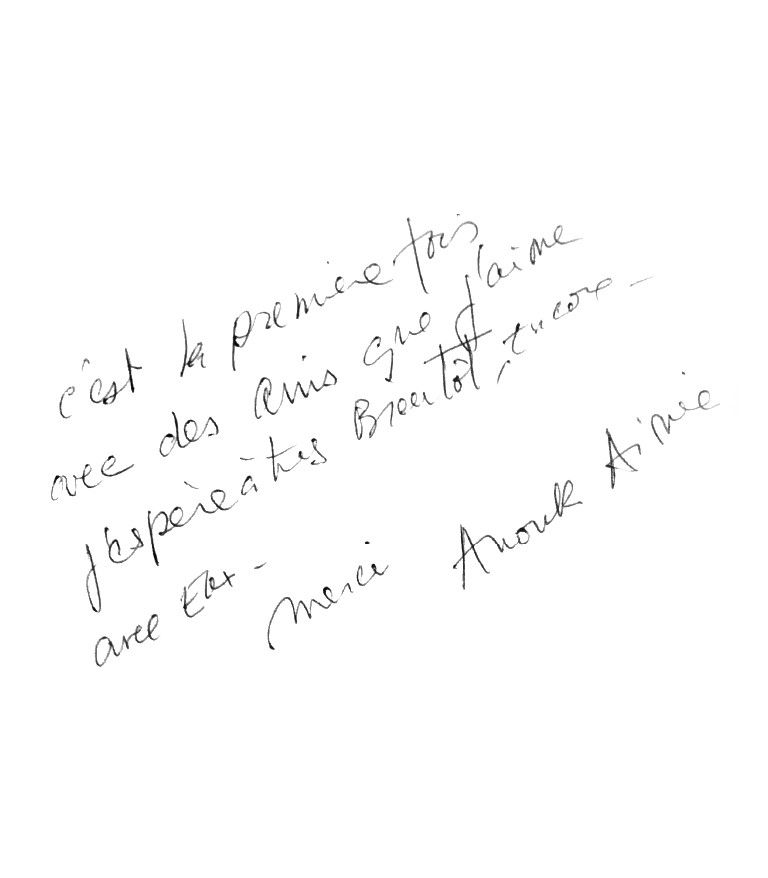 c'est la première fois
avec des amis que j'aime
j'espère à très Bientôt, encore -
avec Eux -
Merci Anouk Aimée